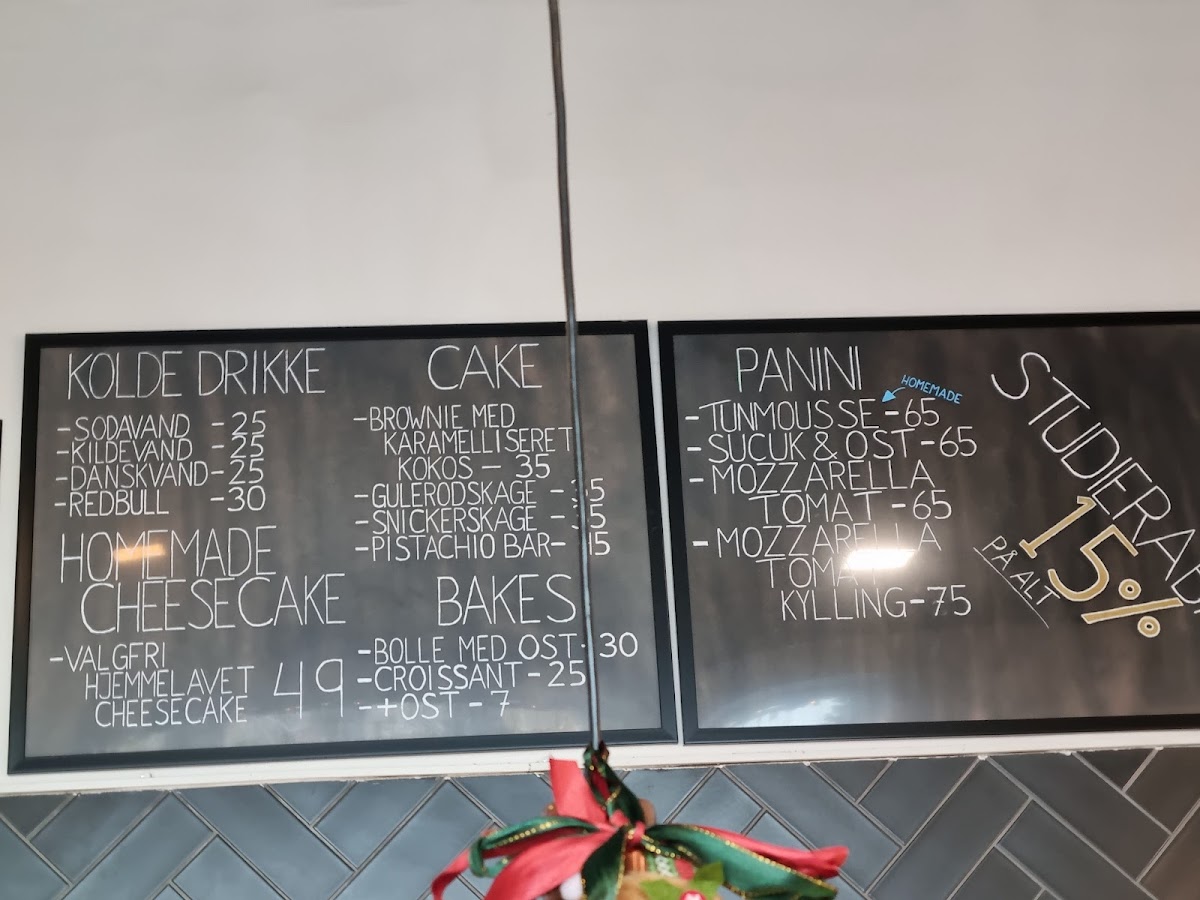 KOLDE DRIKKE
-SODAVAND -25
-KILDEVAND -25
-DANSKVAND-25
-REDBULL -30
HOMEMADE
CHEESECAKE
-VALGFRI
HJEMMELAVET
CHEESECAKE
49
CAKE
-BROWNIE MED
KARAMELLISERET
KOKOS - 35
-GULERODSKAGE -
-SNICKERSKAGE -
-PISTACHIO BAR-
BAKES
-BOLLE MED OST-30
-CROISSANT-25
-+OST-7
PANINI
HOMEMADE
-TUNMOUSSE-65
-SUCUK & OST-65
-MOZZARELLA
TOMAT-65
-MOZZARELLA
TOMAT
KYLLING-75
15%
PÅ ALT